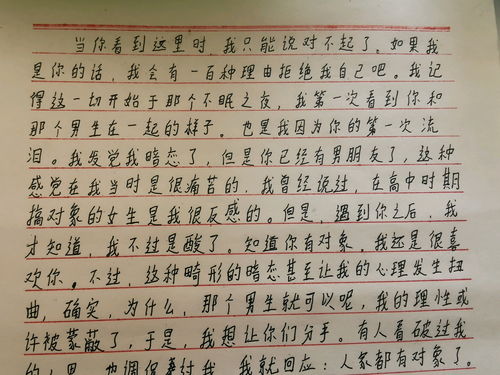 当你看到这里时，我只能说对不起了，如果我
是你的话，我会有一百种理由拒绝我自己吧。我记
得这一切开始于那个不眠之夜，我第一次看到你和
那个男生在一起的样子。也是我因为你的第一次流
泪。我发觉我暗恋了，但是你已经有男朋友了，这种
感觉在我当时是很痛苦的，我曾经说过，在高中时期
搞对象的女生是我很反感的。但是，遇到你之后，我
才知道，我不过是酸了。知道你有对象，我还是很喜
欢你。不过，这种畸形的暗恋甚至让我的心理发生扭
曲，确实，为什么，那个男生就可以呢，我的理性或
许被蒙蔽了，于是，我想让你们分手。有人看破过我
我，我就回应：人家都有对象了。